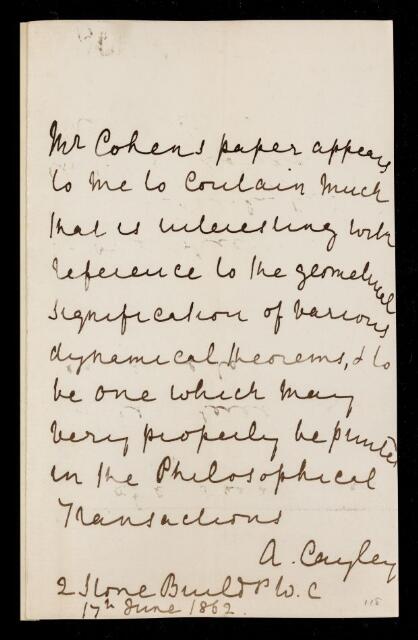 Mr Cohens paper appears
to me to contain much
that is interesting with
reference to the geometrical
signification of various
dynamical theorems, & to
be one which may
very properly be printed
in the Philosophical
Transactions
A. Cayley
2 Stone Buildgs W.C
17th June 1862.